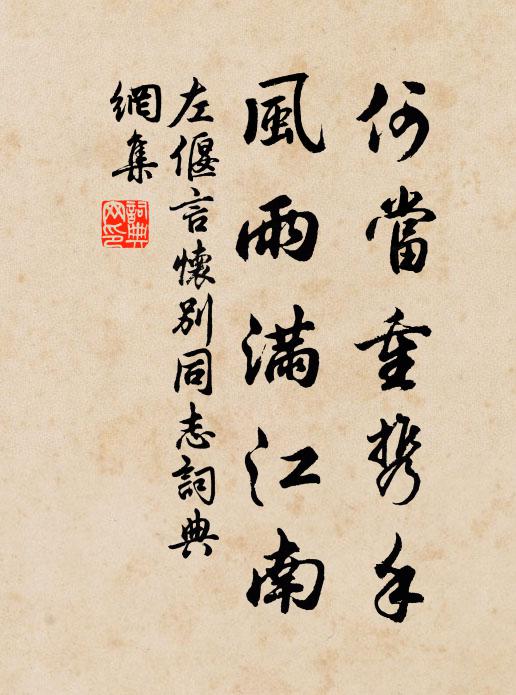 何當重携手
風雨滿江南
左偃言懷別同志詞典
網集
詞典
网印